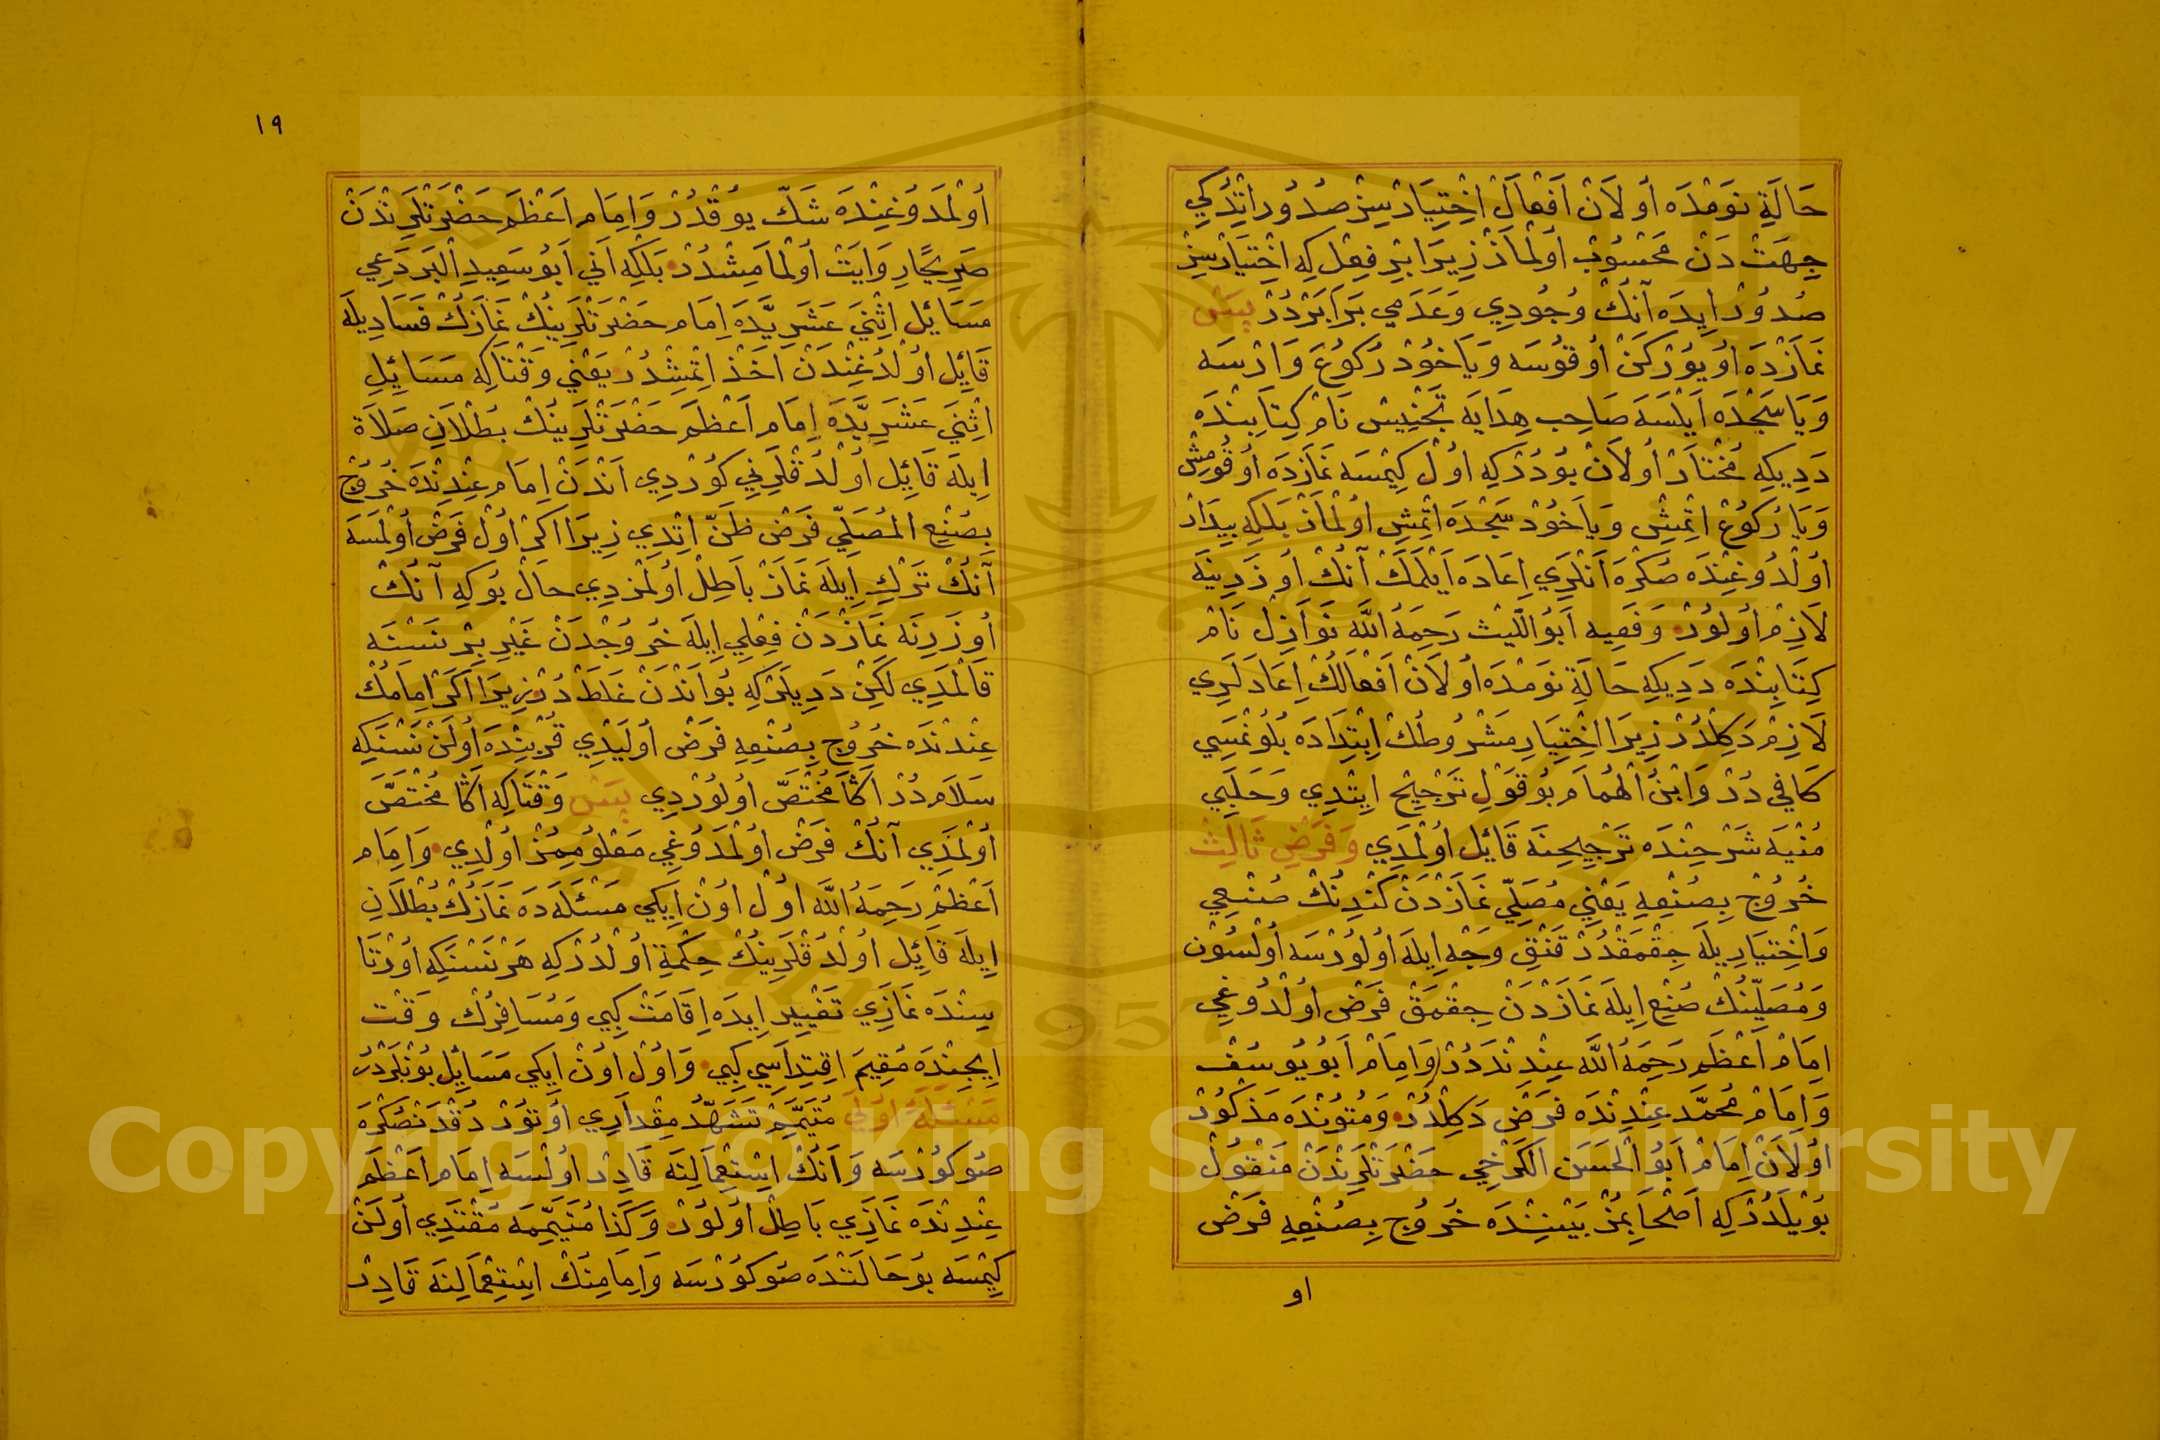 حَالَةِ نَوَمْدَه أُولَانْ اَفْعَالْ اخْتِيَارْسِزْ صُدُور اتْدُكِي
جِهَتْ دَنْ مَحْسُوبْ اُولْمَازْ زِيرَا بْرِ فِعْل كِه اخْتِيَارْسِزْ
صُدُورْ اِيدَه آنُكْ وُجُودِي وَعَدَمِي بَرَابَرْدُرْ پَسْ
نَمَازْدَه اُويُورْكَنْ اُوقُوسَه وَيَاخُودْ رُكُوعَ وَارْسَه
وَيَا سَجْدَه اَيْلَسَه صَاحِب هِدَايَه تَجْنِيسْ نَامْ كِتَابِنْدَه
دَدِيكِه مُخْتَارْ اُولَانْ بُودُرْكِه اُولْ كِيْمْسَه نَمَازْدَه اُوقُومِشْ
وَيَا رُكُوعْ اتْمِشْ وَيَاخُودْ سَجْدَه اتْمِشِ اُولْمَازْ بَلْكِه بِيدَارْ
اُولْدُوغِنْدَه صُكْرَه آنْلَرِي اِعَادَه اَيْلَمَكْ آنُكْ اُوزَرِينَه
لَازِمْ اُولُورْ وَفَقِيه اَبُو اللَّيْث رَحِمَهُ اللَّه نَوَازِلْ نَامْ
كِتَابِنْدَه دَدِيكِه حَالَةِ نَوَمْدَه اُولَانْ اَفْعَالُكْ اِعَادَلَرِي
لَازِمْ دَكِلْدُرْ زِيرَا اخْتِيَارِ مَشْرُوطُكْ اِبْتِدَادَه بُلُونْمَسِي
كَافِي دُرْ وَابْنُ الْهُمَام بُو قَوْلِ تَرْجِيحْ ايتْدِي وَحَلَبِي
مُنْيَه شَرْحِنْدَه تَرْجِيحِنَه قَائِل اُولْمَدِي وَفَرْضِ ثَالِثْ
خُرُوجْ بِصُنْعِهِ يَعْنِي مُصَلِّي نَمَازْدَنْ كَنْدِنُكْ صُنْعِي
وَاخْتِيَارِيلَه چِقْمَقْدُرْ قَنْقِ وَجْهِ اِيلَه اُولُورْسَه اُولْسُونْ
وَمُصَلِّينُكْ صُنْعِ اِيلَه نَمَازْدَنْ چِقْمَقْ فَرْض اُولْدُوغِي
اِمَامْ اَعْظَم رَحِمَهُ اللَّه عِنْدِنْدَدُرْ وَاِمَامْ اَبُو يُوسُفْ
وَاِمَامْ مُحَمَّد عِنْدِنْدَه فَرْض دَكِلْدُرْ وَمُتُونْدَه مَذْكُورْ
اُولَانْ اِمَامْ اَبُو الْحَسَن الْكَرْخِي حَضْرَتْلَرِنْدَنْ مَنْقُولْ
بُويْلَدُرْكِه اَصْحَابِمُزْ بَيْنِنْدَه خُرُوج بِصُنْعِهِ فَرْض
او
١٩
اُولْمَدُوغِنْدَه شَكّ يُوقْدُرْ وَاِمَام اَعْظَم حَضْرَتْلَرِنْدَنْ
صَرِيحًا رِوَايَتْ اُولْمَامِشْدُرْ بَلْكِه آنِي اَبُو سَعِيدِ الْبَرْدَعِي
مَسَائِل اثْنَيْ عَشَرِيَّدَه اِمَام حَضْرَتْلَرِينُكْ نَمَازُكْ فَسَادِيلَه
قَائِل اُولْدُغِنْدَنْ اَخَذْ اِتْمِشْدُرْ يَعْنِي وَقْتَاكِه مَسَائِلِ
اِثْنَيْ عَشَرِيَّدَه اِمَام اَعْظَم حَضْرَتْلَرِينُكْ بُطْلَانِ صَلَاة
اِيلَه قَائِل اُولْدُقْلَرِنِي كُورْدِي آنْدَنْ اِمَام عِنْدِنْدَه خُرُوجْ
بِصُنْعِ الْمُصَلِّي فَرْض ظَنّ اتْدِي زِيرَا اَكَرْ اُولْ فَرْض اُولْمَسَه
آنُكْ تَرْكِ اِيلَه نَمَازْ بَاطِلْ اُولْمَزْدِي حَالْ بُوكِه آنُكْ
اُوزَرِنَه نَمَازْدَنْ فِعْلِي اِيلَه خُرُوجْدَنْ غَيْرِ بِرْ نَسْنَه
قَالْمَدِي لَكِنْ دَدِيلَرْكِه بُو آنْدَنْ غَلَطْ دُرْ زِيرَا اَكَرْ اِمَامُكْ
عِنْدِنْدَه خُرُوج بِصُنْعِهِ فَرْض اُولَيْدِي قُرْبِنْدَه اُولَنْ نَسْنَكِه
سَلَام دُرْ اَكَا مُخْتَصّ اُولُورْدِي پَسْ وَقْتَاكِه اَكَا مُخْتَصّ
اُولْمَدِي آنُكْ فَرْض اُولْمَدُوغِي مَعْلُومُمُزْ اُولْدِي وَاِمَام
اَعْظَمْ رَحِمَهُ اللَّه اُولْ اُونْ اِيكِي مَسْئَلَه دَه نَمَازُكْ بُطْلَانِ
اِيلَه قَائِل اُولْدُقْلَرِينُكْ حِكْمَةِ اُولْدُرْكِه هَرْ نَسْنَكِه اُورْتَا
سِنْدَه نَمَازِي تَغْيِير اِيدَه اِقَامَتْ كِبِي وَمُسَافِرُكْ وَقْت
اِيچِنْدَه مُقِيمَ اقِتِدَاسِي كِبِي وَاُولْ اُونْ اِيكِي مَسَائِل بُونْلَرْدُرْ
مَسْئَلَهُ اُولَى مُتَيَمِّمْ تَشَهُّد مِقْدَارِي اُوتُورْدُقْدَنْصُكْرَه
صُو كُورْسَه وَآنُكْ اِسْتِعْمَالِنَه قَادِرْ اُولْسَه اِمَام اَعْظَم
عِنْدِنْدَه نَمَازِي بَاطِلْ اُولُورْ وَكَذَا مُتَيَمِّمَه مُقْتَدِي اُولَنْ
كِيْمْسَه بُو حَالَتْدَه صُو كُورْسَه وَاِمَامِنُكْ اِسْتِعْمَالِنَه قَادِرْ
Copyright © King Saud University
1957